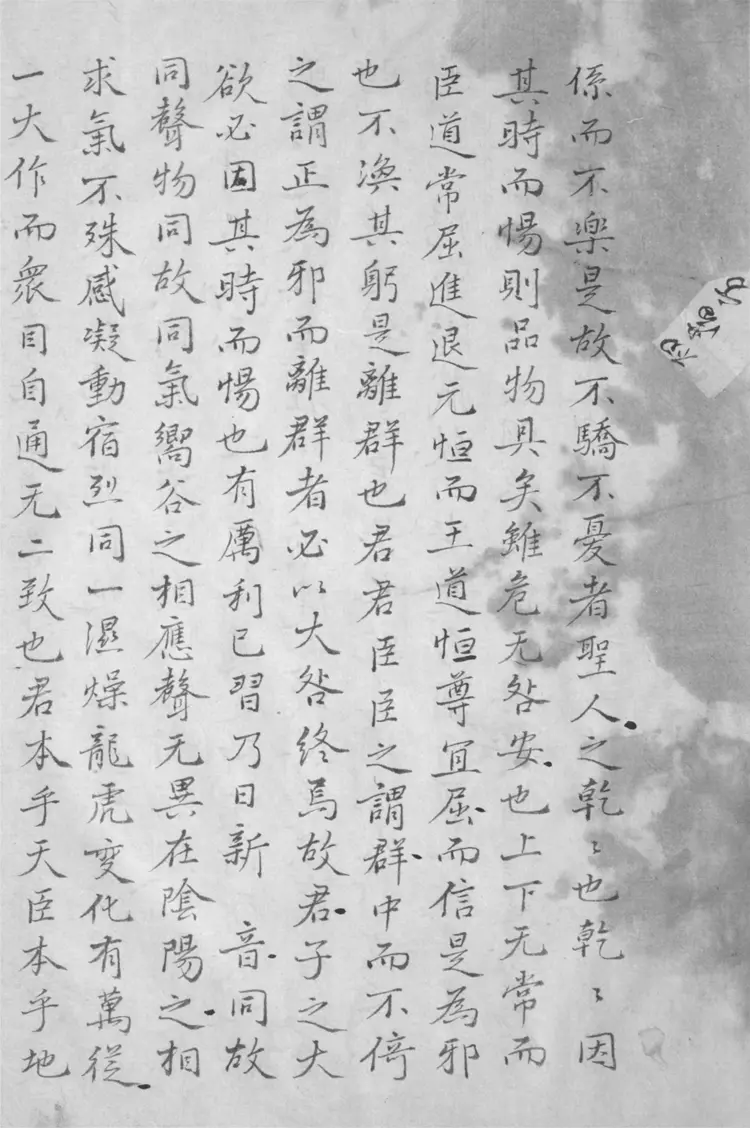 係而不楽是故不驕不憂者聖人之乾〻也乾〻因
其時而惕則品物具矣雖危无咎安也上下无常而
臣道常屈進退元恒而王道恒尊冝屈而信是為邪
也不渙其躬是離群也君君臣臣之謂群中而不倚
之謂正為邪而離群者必以大咎終焉故君子之大
欲必因其時而惕也有厲利已習乃日新 音同故
同聲物同故同氣嚮谷之相應聲无異在陰陽之相
求氣不殊感凝動宿烈同一濕燥龍虎变化有萬従
一大作而衆目自通无二致也君本乎天臣本乎地